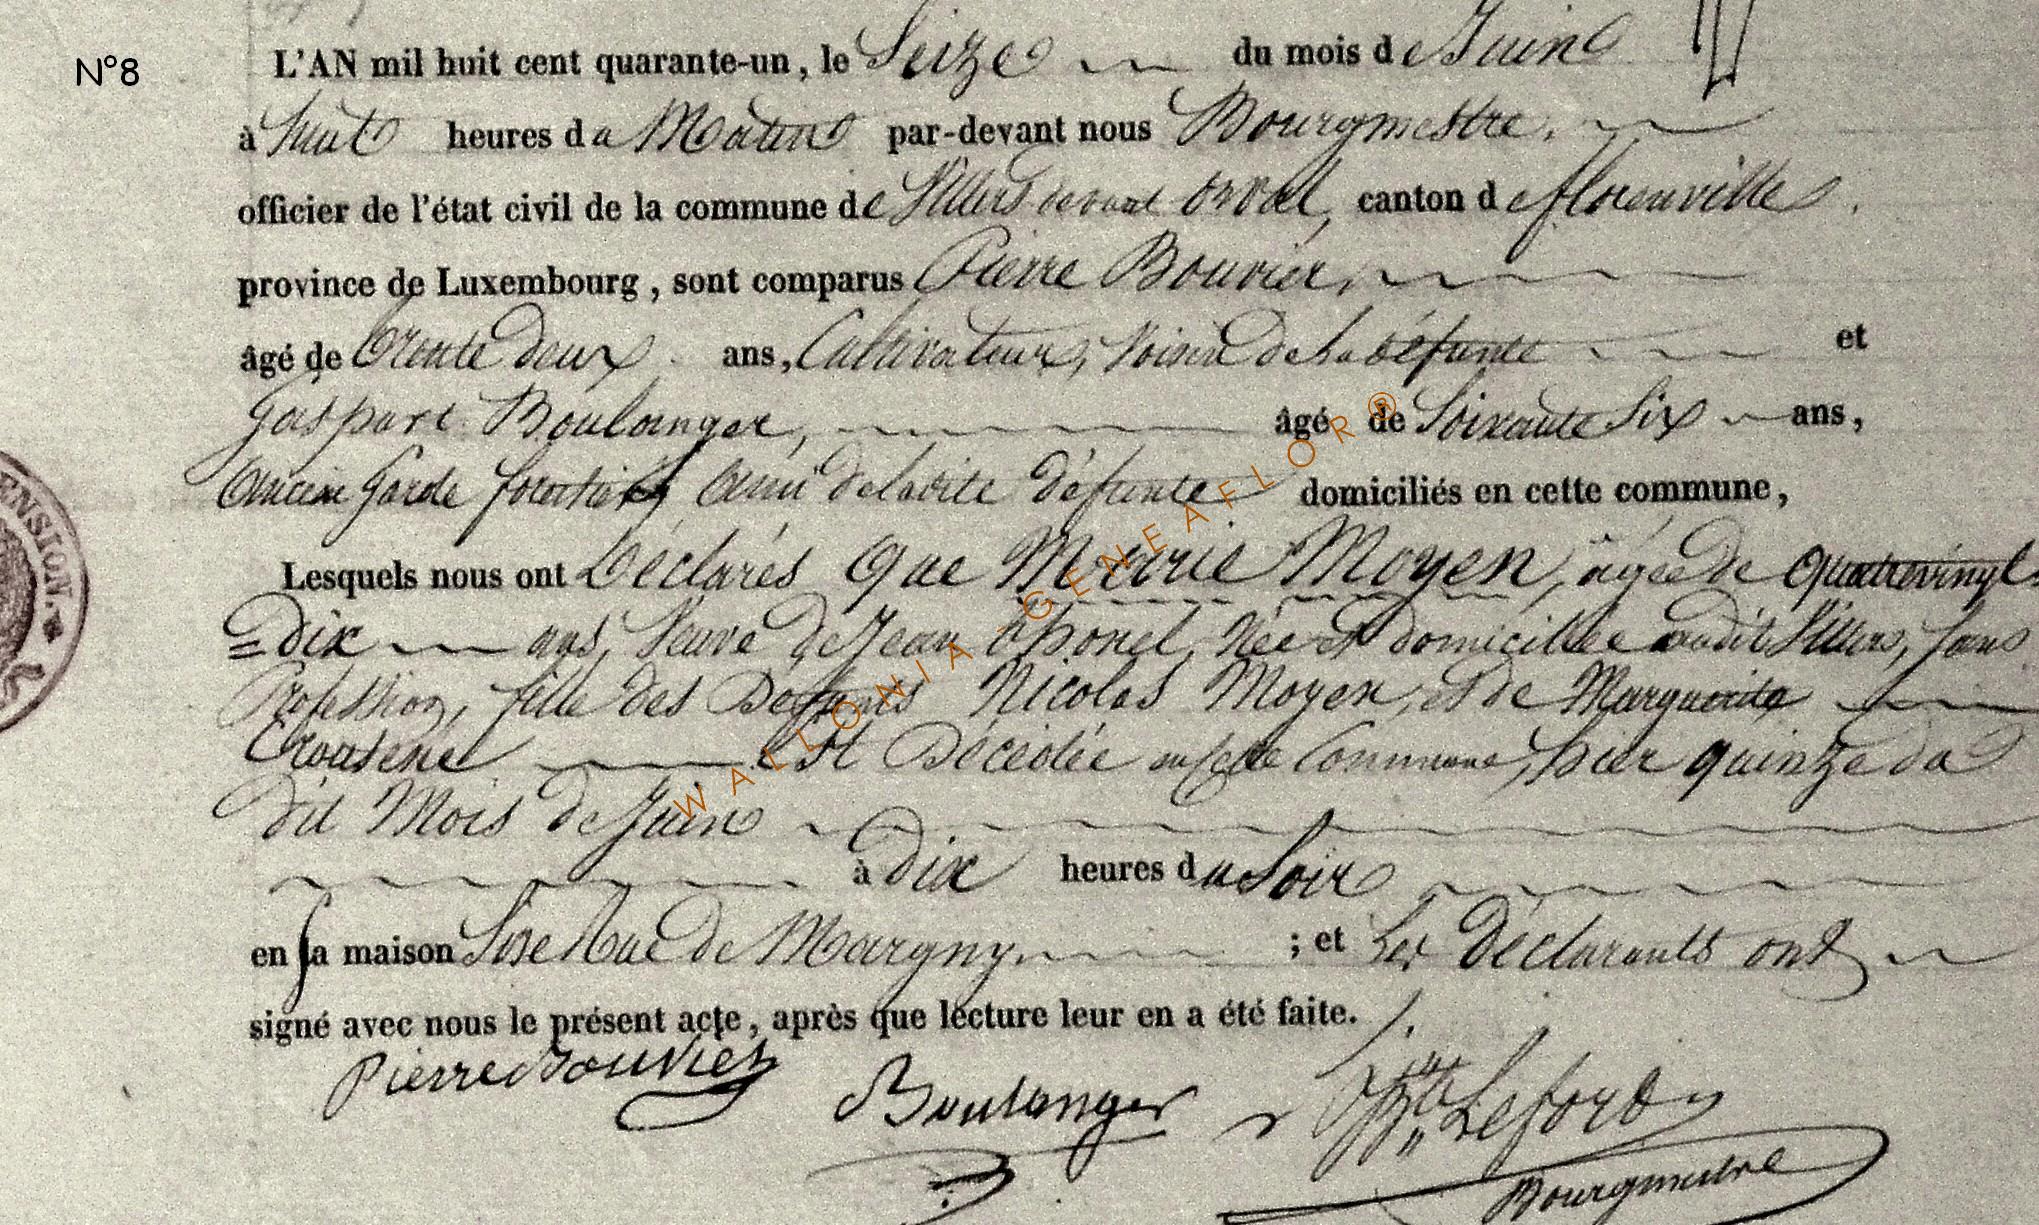 N°8
L'AN mil huit cent quarante-un, le Seize du mois de Juin
à huit heures du Matin par-devant nous Bourgmestre.
officier de l'état civil de la commune de Villers devant orval, canton de florenville.
province de Luxembourg, sont comparus Pierre Bouvier,
âgé de trente deux ans, Cultivateur, Voisin de la défunte et
Gaspart Boulanger, âgé de Soixante Six ans,
Ancien garde forestier, Ami de la dite défunte domiciliés en cette commune,
Lesquels nous ont Déclarés Que Marie Moyen, agée de Quatrevingt
=dix ans, Veuve de Jean thonel, Née et domiciliée audit Villers, sans
Profession, fille des Défunts Nicolas Moyen, et de Marguerite
est Décédée en cette Commune, hier quinze du
dit Mois de Juin
à dix heures du Soir
en sa maison Sise Rue de Margny ; et Les Déclarants ont
signé avec nous le présent acte, après que lecture leur en a été faite. /.
Pierre Bouvier Boulanger Lefort
Bourgmestre
ENSION.
WALLONIA-GENEAFLOR®